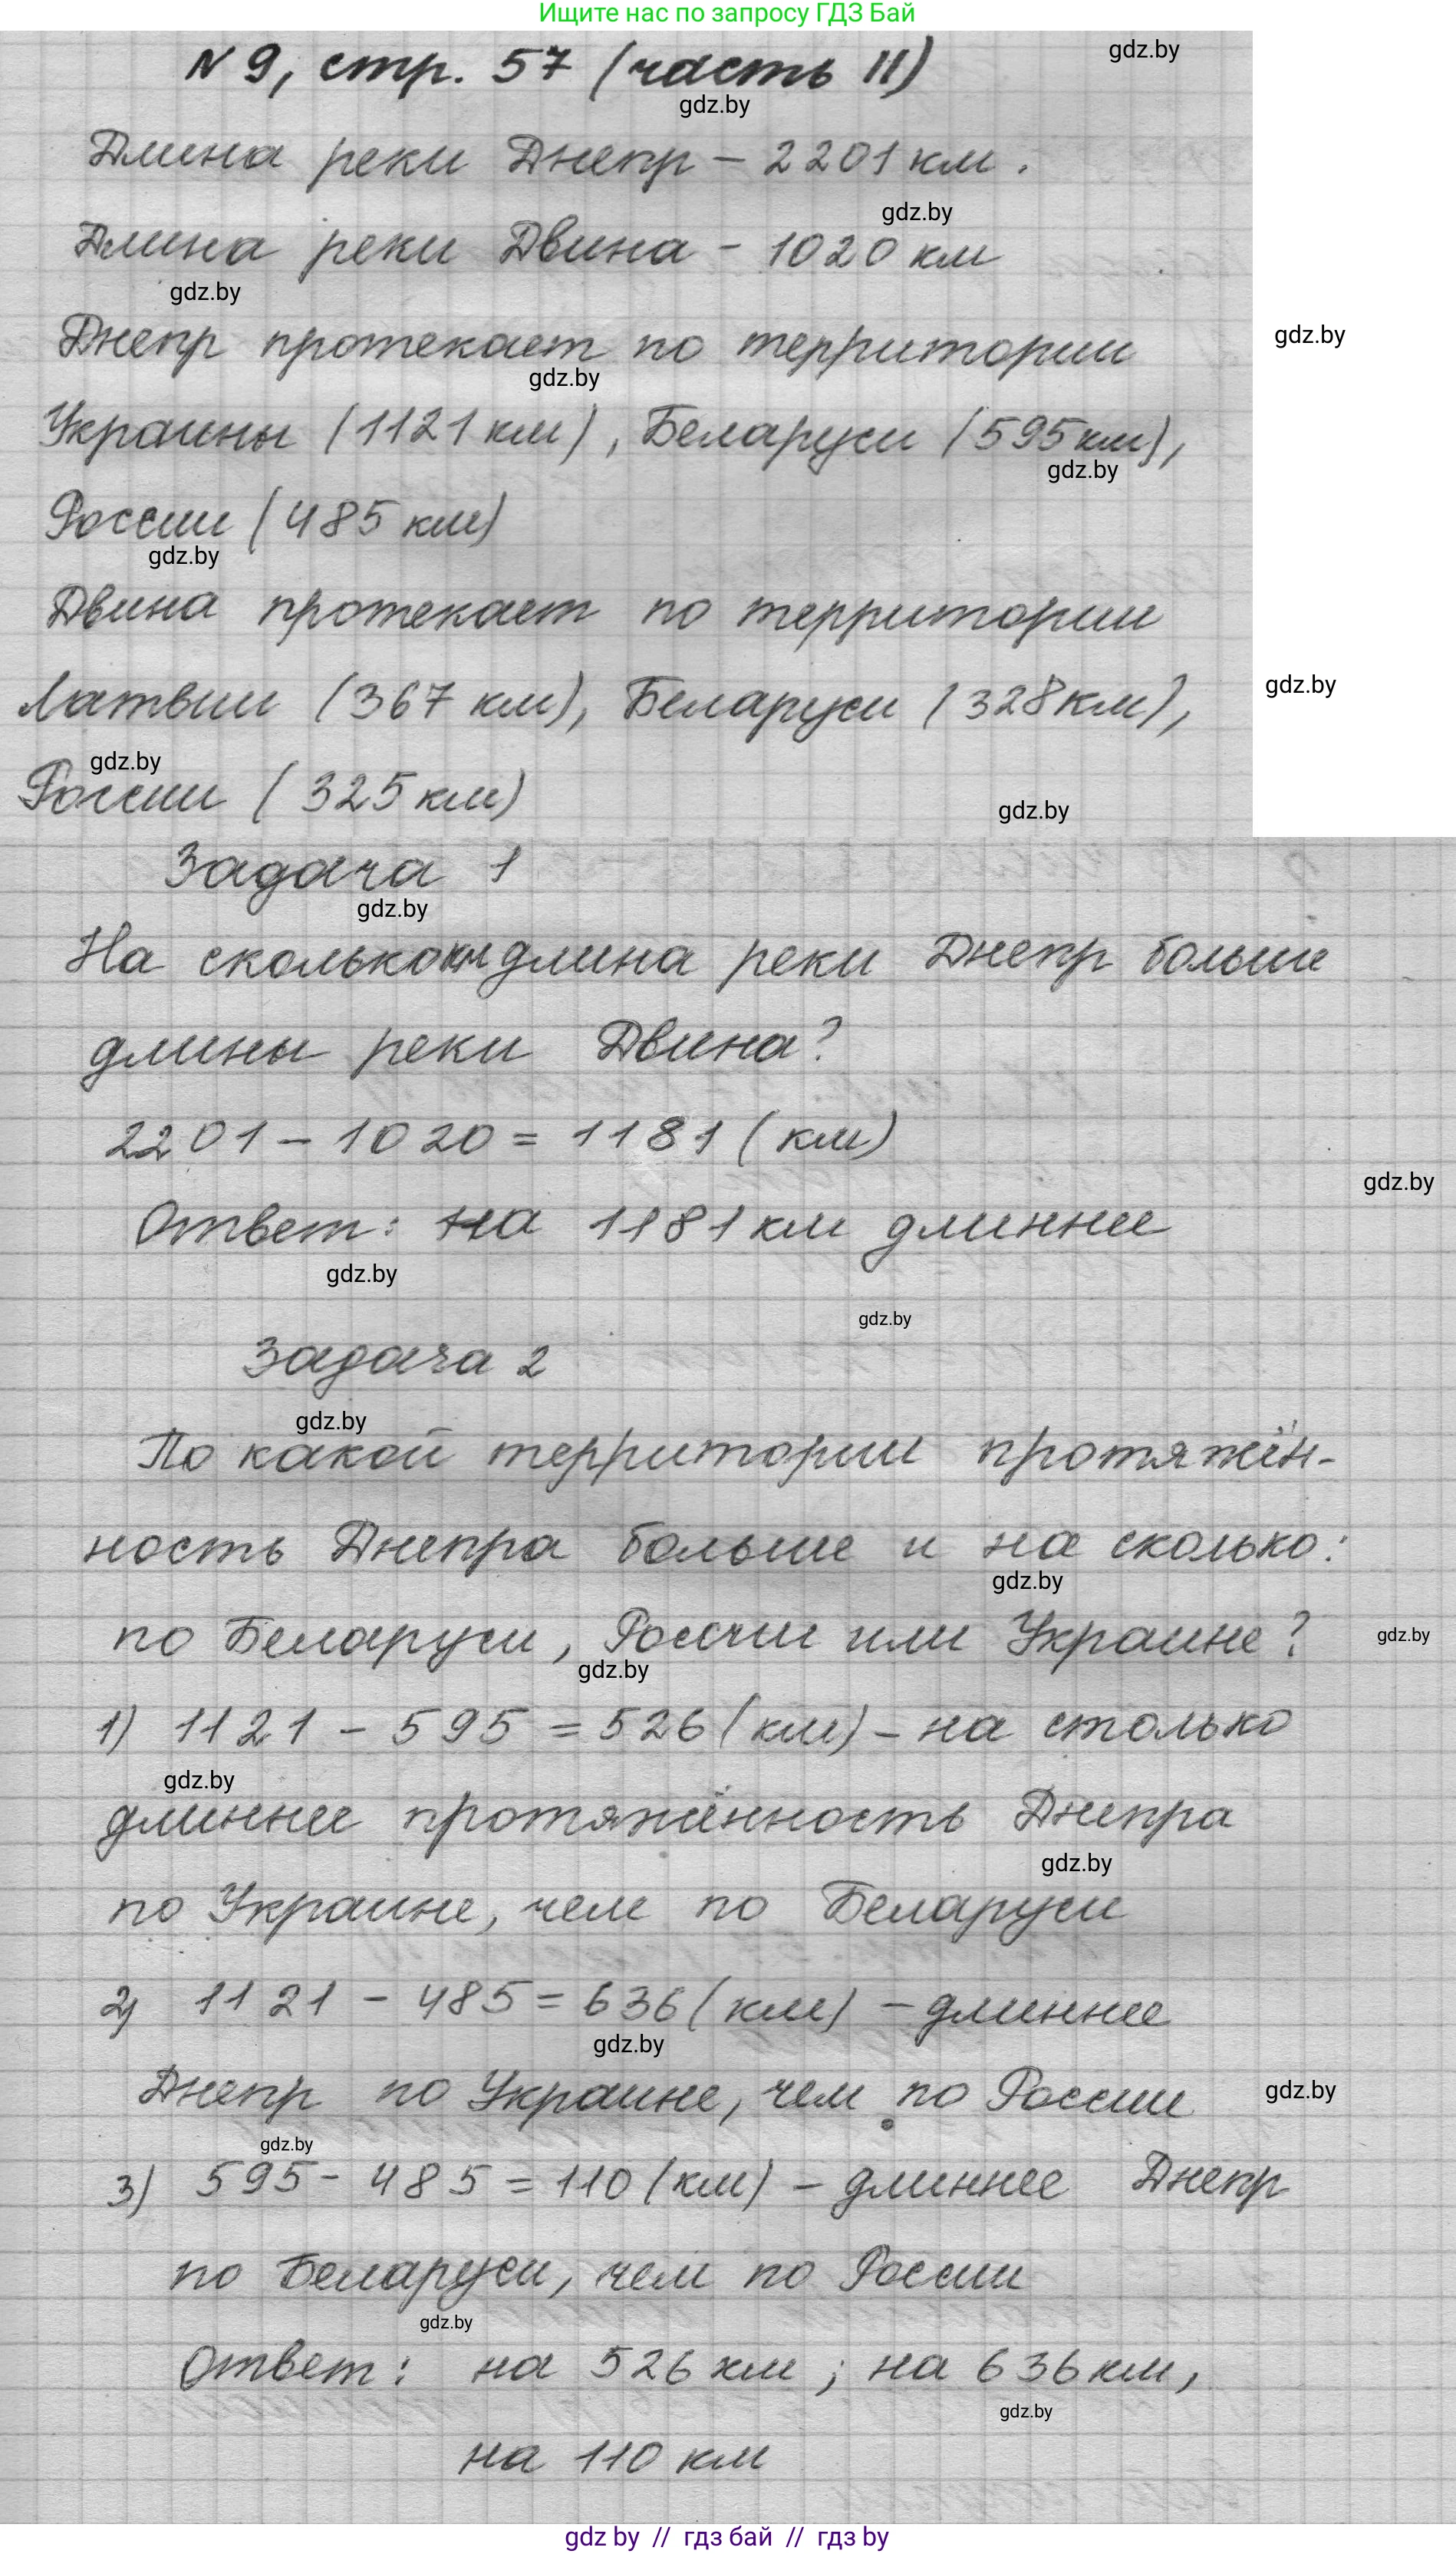 Ищите нас по запросу ГДЗ Бай
N 9, стр. 57 (часть II)
gdz.by
gdz.by
Длина реки Днепр - 2201 км.
gdz.by
Длина реки Двина - 1020 км
gdz.by
Днепр протекает по территории
gdz.by
gdz.by
Украины (1121 км), Беларуси (595 км),
gdz.by
России (485 км)
gdz.by
Двина протекает по территории
Латвии (367 км), Беларуси (328 км),
gdz.by
gdz.by
России (325 км)
gdz.by
Задача 1
gdz.by
На сколько км длина реки Днепр больше
длины реки Двина?
2201 - 1020 = 1181 (км)
gdz.by
Ответ: на 1181 км длиннее
gdz.by
gdz.by
Задача 2
gdz.by
По какой территории протяжён-
ность Днепра больше и на сколько:
gdz.by
по Беларуси, России или Украине?
gdz.by
gdz.by
1) 1121 - 595 = 526 (км) - на столько
gdz.by
длиннее протяжённость Днепра
gdz.by
по Украине, чем по Беларуси
2) 1121 - 485 = 636 (км) - длиннее
gdz.by
Днепр по Украине, чем по России
gdz.by
gdz.by
3) 595 - 485 = 110 (км) - длиннее Днепр
по Беларуси, чем по России
gdz.by
Ответ: на 526 км; на 636 км,
gdz.by
на 110 км
gdz by // гдз бай // гдз by